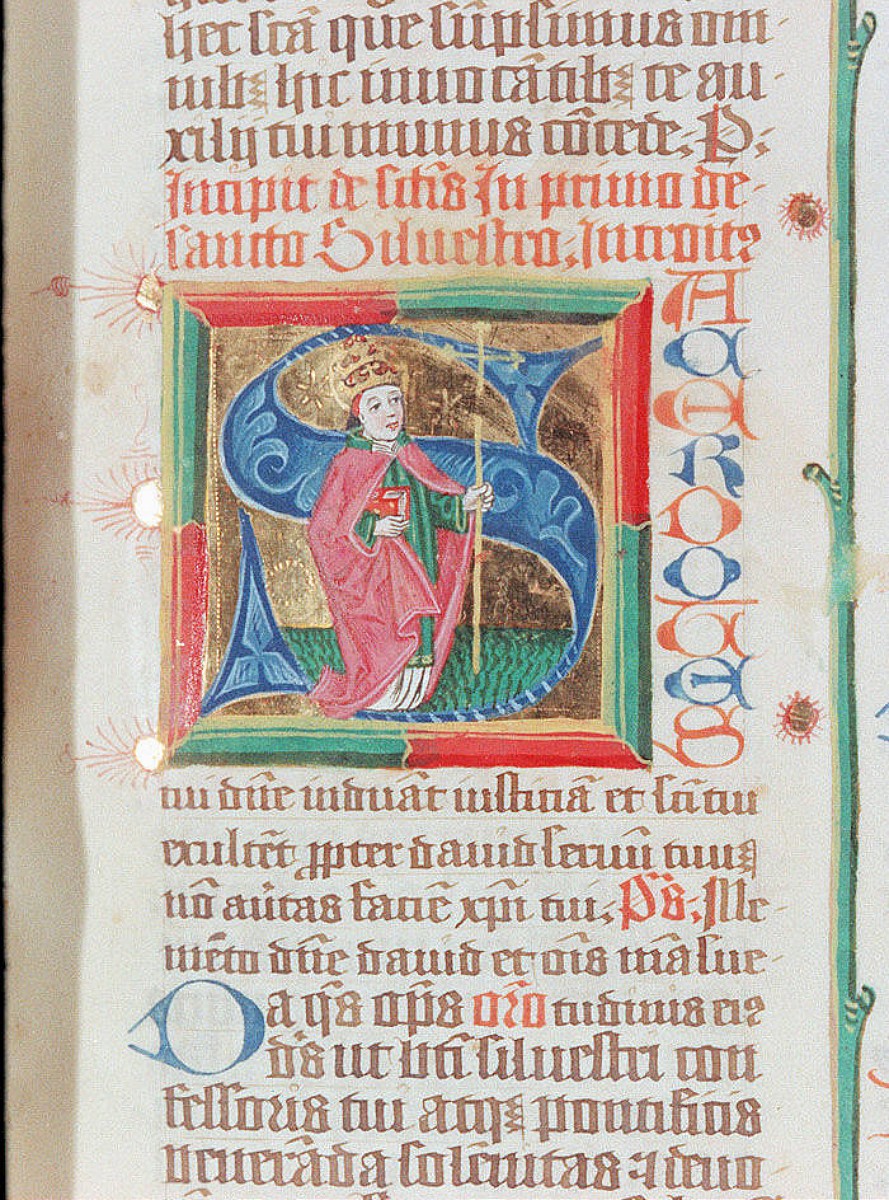 hec scā que sūpsimus om
nib⁊ hic inuocātib⁊ te au
xilij tui munus cōcede. P.
Incipit de sctīs In primo de
sancto Siluestro. Introitꝰ
S
A
C
E
R
D
O
T
E
S
tui dn̄e induāt iusticiā et sc̄i tui
exultēt ꝓpter dauid seruū tuū
nō au̇tas faciē xp̄i tui. Ps̄. Me
mēto dn̄e dauid et oīs māsue
Da qs̄ op̄s orō tudinis eiꝰ
ds̄ ut bt̄i siluestri con
fessoris tui atq⁊ pontificis
venerāda solēnitas ⁊ deuo